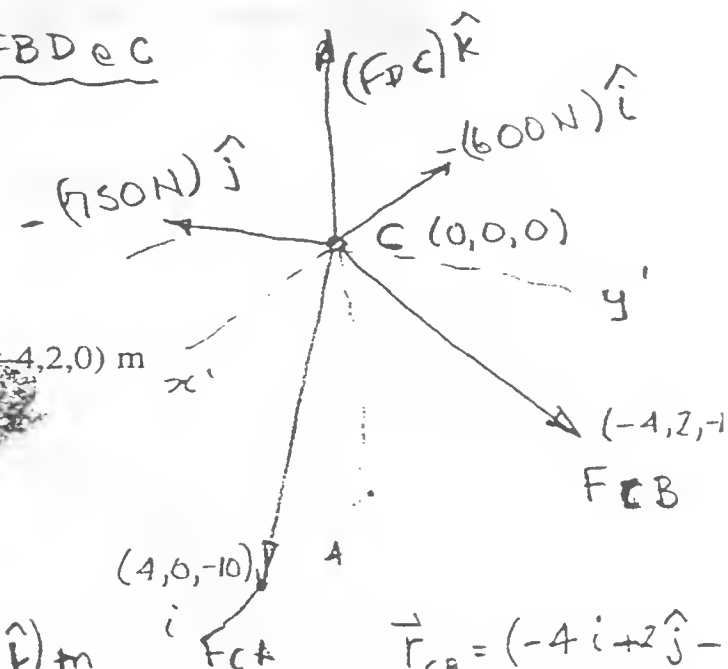 FBD @ C
(F_DC) k̂
-(600N) î
-(750N) ĵ
C (0,0,0)
y'
-4,2,0) m
x'
(-4,2,-1
F_CB
(4,0,-10)
A
i
k̂) m
r⃗_CB = (-4 i +2 ĵ -